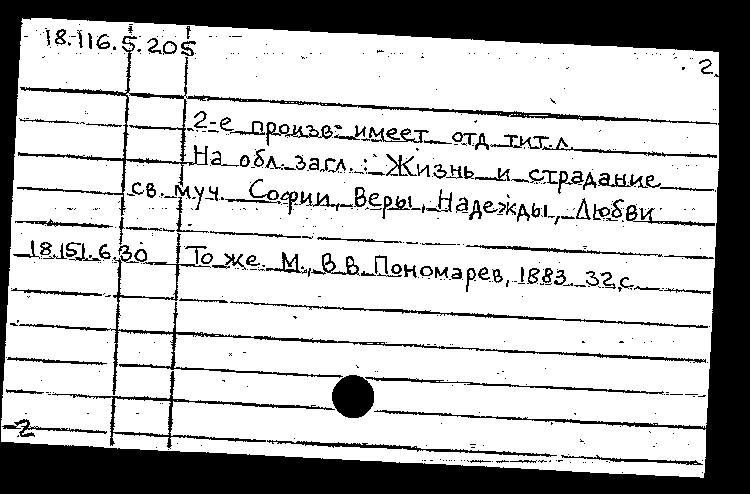 18.116.5.205
2
2-е произв. имеет отд. тит. л.
На обл. загл.: Жизнь и страдание
св. муч. Софии, Веры, Надежды, Любви
18.151.6.30 То же. М., В.В. Пономарев, 1883. 32 с.
2